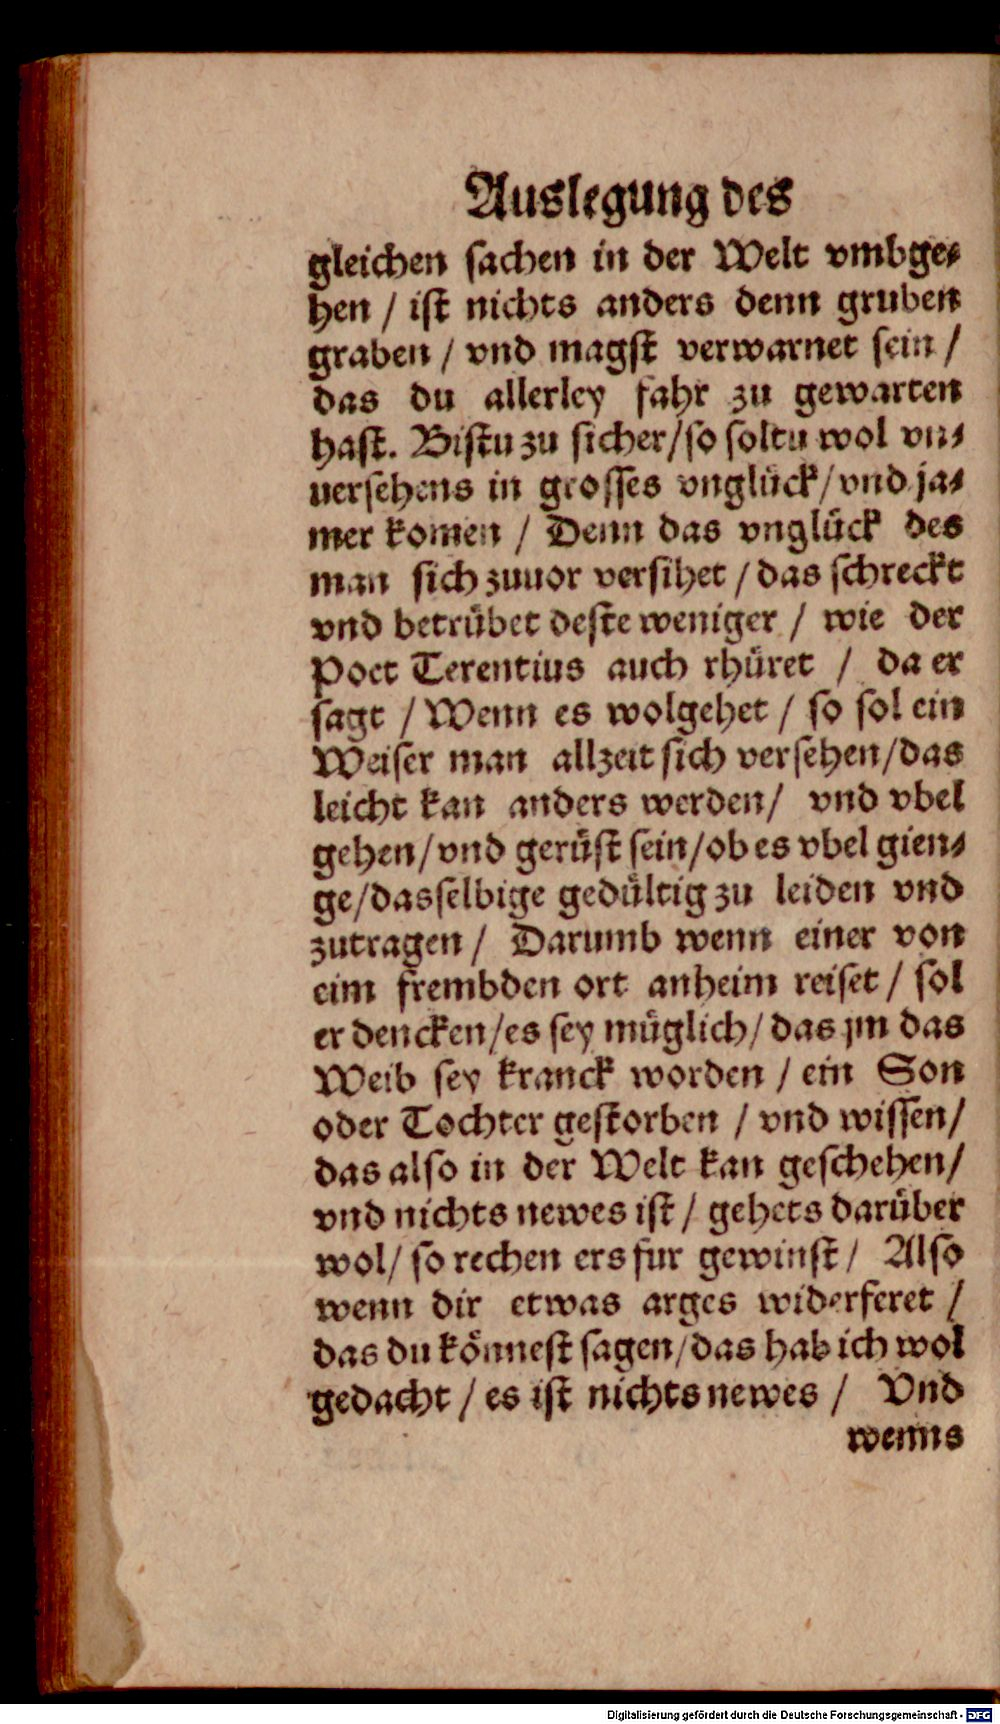 Auslegung des
gleichen sachen in der Welt vmbge⸗
hen / ist nichts anders denn gruben
graben / vnd magst verwarnet sein /
das du allerley fahr zu gewarten
hast. Bistu zu sicher/so soltu wol vn⸗
uersehens in grosses vnglück/vnd ja⸗
mer komen / Denn das vnglück des
man sich zuuor versihet / das schreckt
vnd betrübet deste weniger / wie der
Poet Terentius auch rhüret / da er
sagt / Wenn es wolgehet / so sol ein
Weiser man allzeit sich versehen/das
leicht kan anders werden/ vnd vbel
gehen/vnd gerüst sein/ob es vbel gien⸗
ge/dasselbige gedültig zu leiden vnd
zutragen / Darumb wenn einer von
eim frembden ort anheim reiset / sol
er dencken/es sey müglich/das jm das
Weib sey kranck worden / ein Son
oder Tochter gestorben / vnd wissen/
das also in der Welt kan geschehen/
vnd nichts newes ist / gehets darüber
wol/ so rechen ers fur gewinst / Also
wenn dir etwas arges widerferet /
das du könnest sagen/das hab ich wol
gedacht / es ist nichts newes / Vnd
wenns
Digitalisierung gefördert durch die Deutsche Forschungsgemeinschaft - DFG